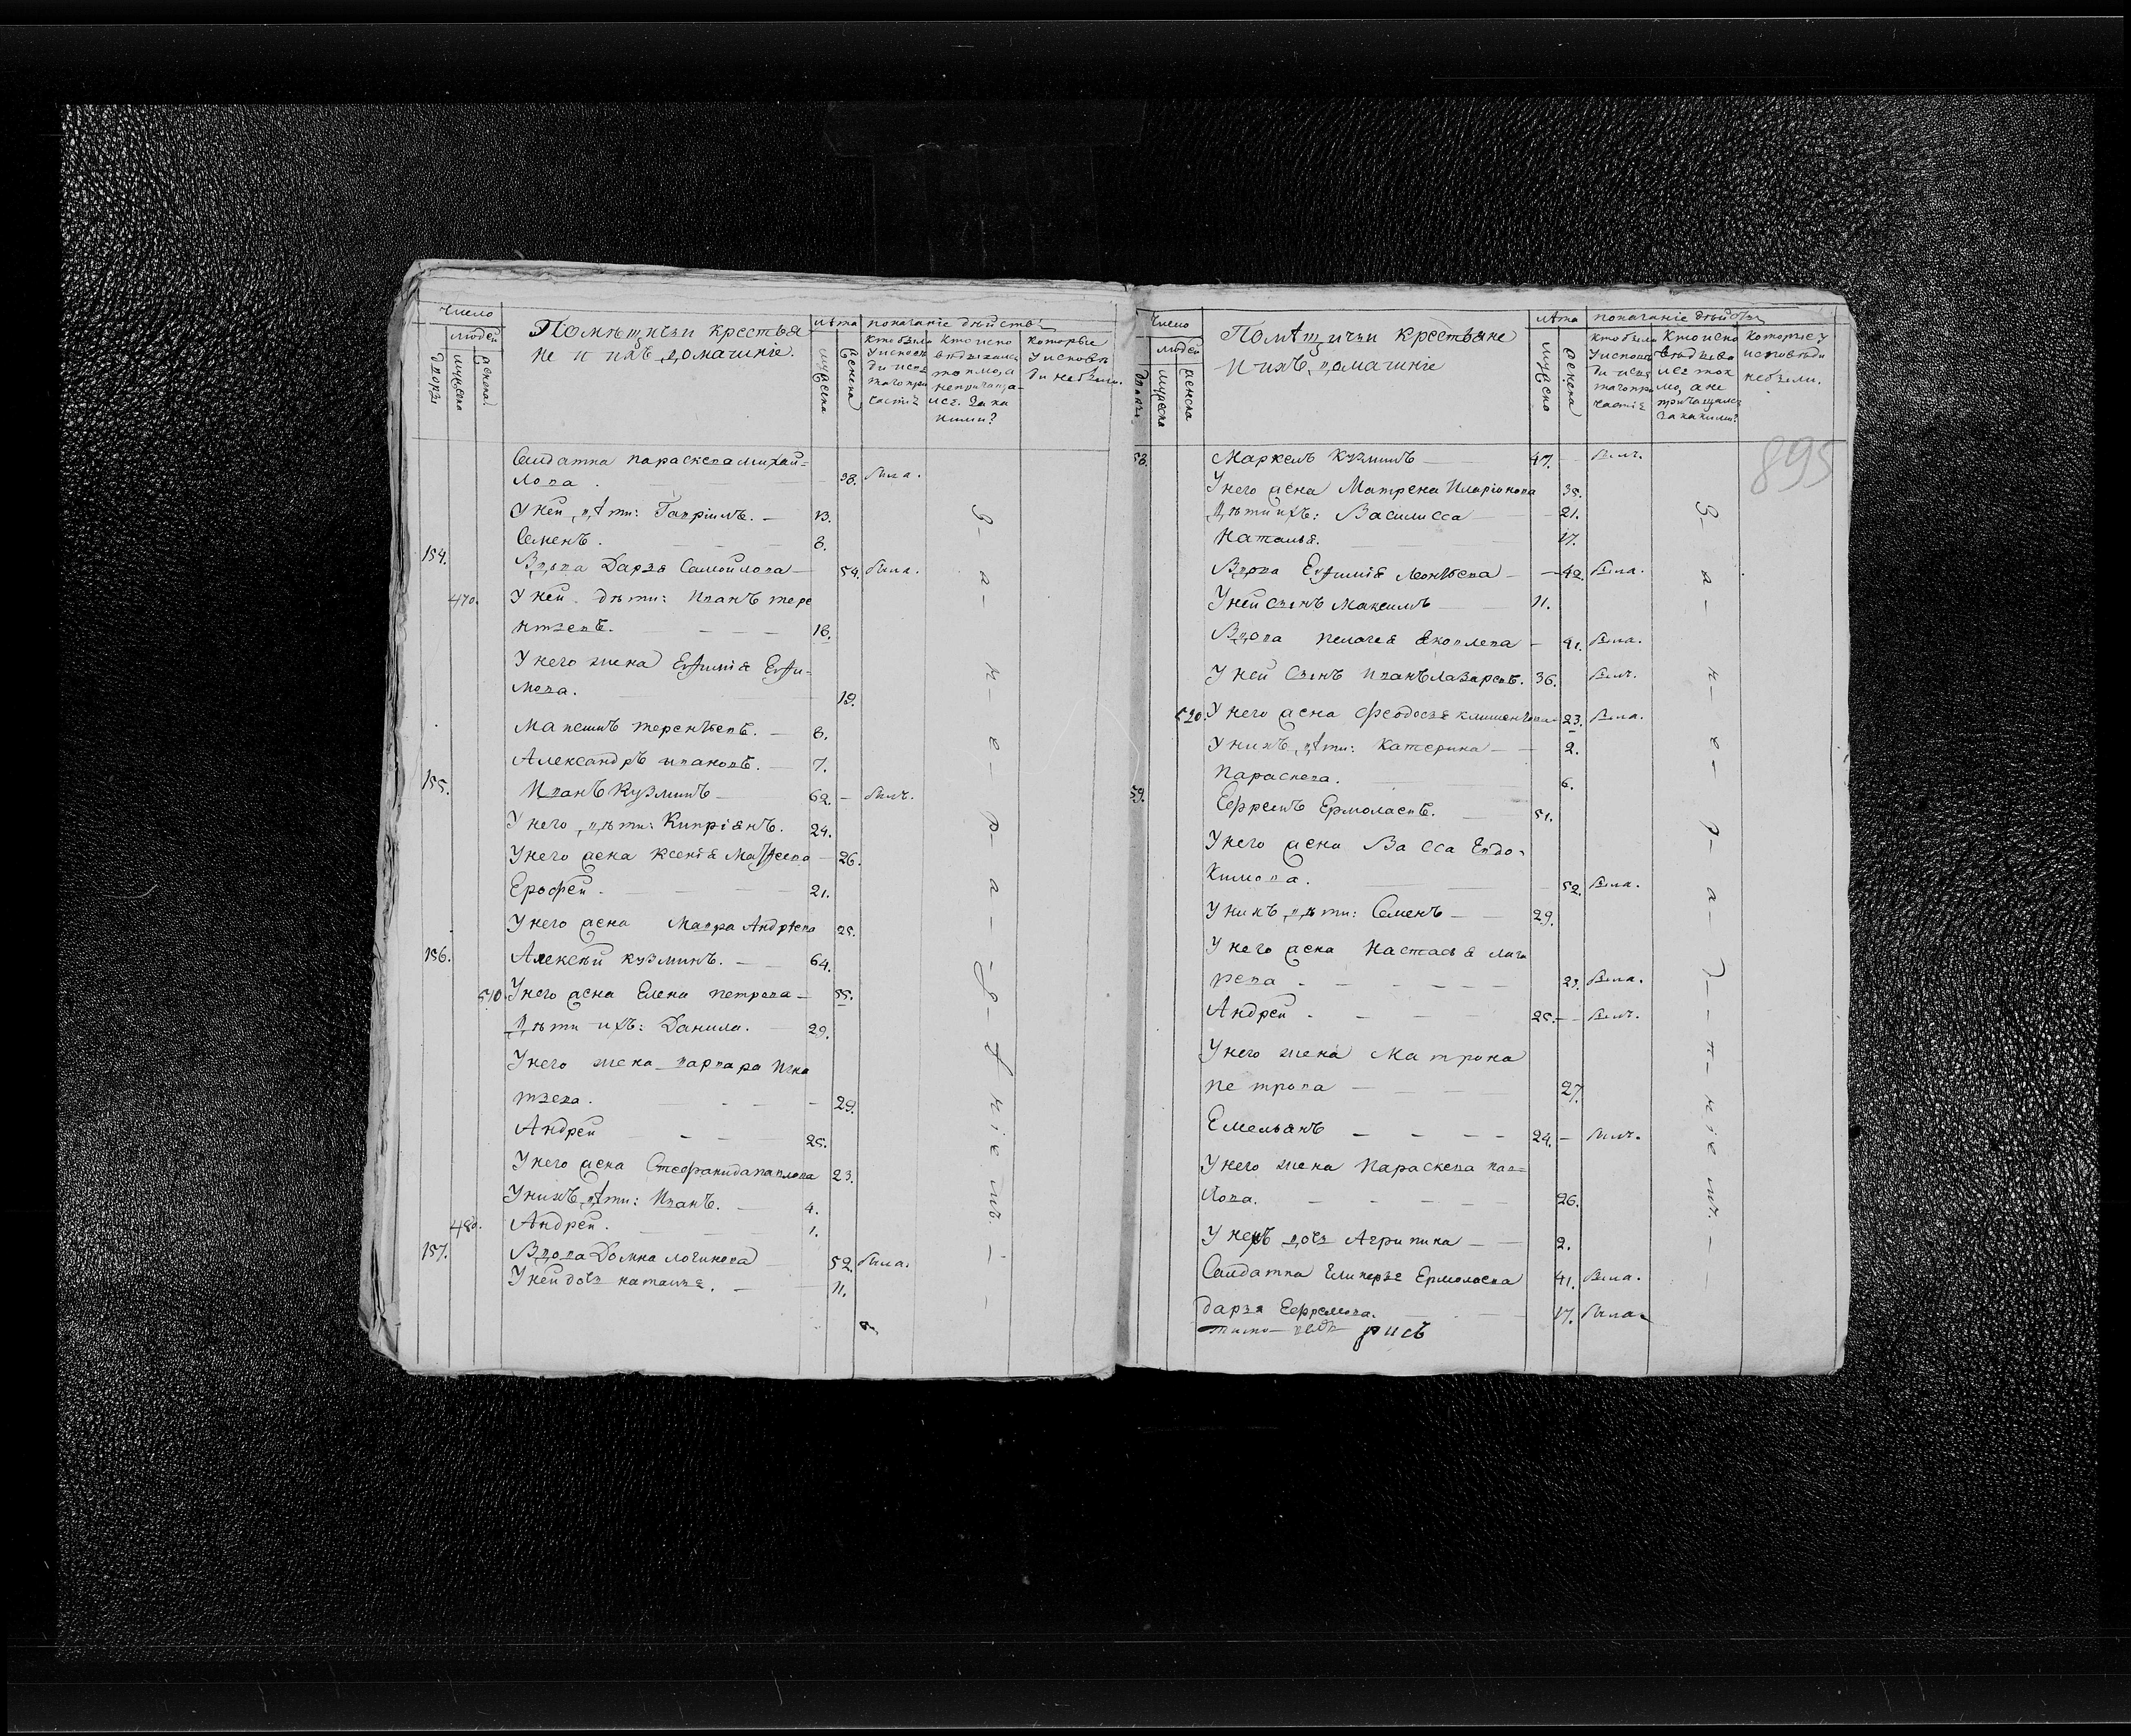 Число
людей
дворы
мужеска
женска
Помѣщичьи крестья
не и ихъ домашніе.
лѣта
мужеска
женска
показаніе дѣйствъ
кто были
у испове
ди и св:
таго при
частія
кто испо
вѣдывался
токмо, а
непричаща-
лся. За ка
кими?
которые
у исповѣ
ди небыли.
Салдатка Параскева Михай=
лова . 38. была.
У ней дѣти: Гавріилъ. — 13.
Семенъ . 8.
154. Вдова Дарья Самойлова — 54. была.
470. У ней дѣти: Иванъ тере
нтьевъ. 18.
У него жена Евѳимія Евѳи-
мова. 19.
Максимъ терентьевъ. — 8.
Александръ ивановъ. — 7.
155. Иванъ Кузминъ — 62. — былъ.
У него дѣти: Кипріянъ. 24.
У него жена Ксенія Матѳеева — 26.
Ерофей . 21.
У него жена Мавра Андрѣева 25.
156. Алексѣй Кузминъ. — 64.
510. У него жена Елена Петрова — 55.
Дѣти ихъ: Данила. — 29.
У него жена варвара Игна
тьева . — 29.
Андрей 25.
У него жена Стефанида павлова 23.
У нихъ дѣти: Иванъ. — 4.
480. Андрей . 1.
157. Вдова Домна логинова 52. была.
У ней дочь наталья. — 11.
З-а-н-е-р-а-д-ѣ-н-іе-мъ.
Число
людей
дворы
мужеска
женска
Помѣщичьи крестьяне
и ихъ домашніе
лѣта
мужеска
женска
показаніе дѣйствъ
кто были
у испове
ди и свя
таго при
частія
кто испо
вѣдыва
лся ток
мо, а не
причащался
За какими?
которые у
исповѣди
небыли.
895
58. Маркелъ Кузминъ — 47. былъ.
У него жена Матрена Иларіонова 35.
Дѣти ихъ: Василисса — 21.
Наталья. 17.
Вдова Евѳимія Леонтьева — 42. была.
У ней сынъ Максимъ 11.
Вдова пелагея яковлева — 41. была.
У ней Сынъ Иванъ лазаревъ. 36. былъ.
520. У него жена Феодосья клименьтьева 23. была.
У нихъ дѣти: Катерина — 2.
Параскева. 6.
59. Ефремъ Ермолаевъ. 51.
У него жена Васса Евдо-
кимова. 52. была.
У нихъ дѣти: Семенъ — 29.
У него жена Настасья лаза
рева - 29. была.
Андрей . 25. — былъ.
У него жена Матрона
петрова — 27.
Емельянъ — 24. — былъ.
У него жена Параскева пав=
лова. 26.
У нихъ дочь Агрипина — 2.
Салдатка Гликерья Ермолаева 41. была.
дарья Ефремова. 17. была.
З-а-н-е-р-а-д-ѣ-н-іе-мъ.